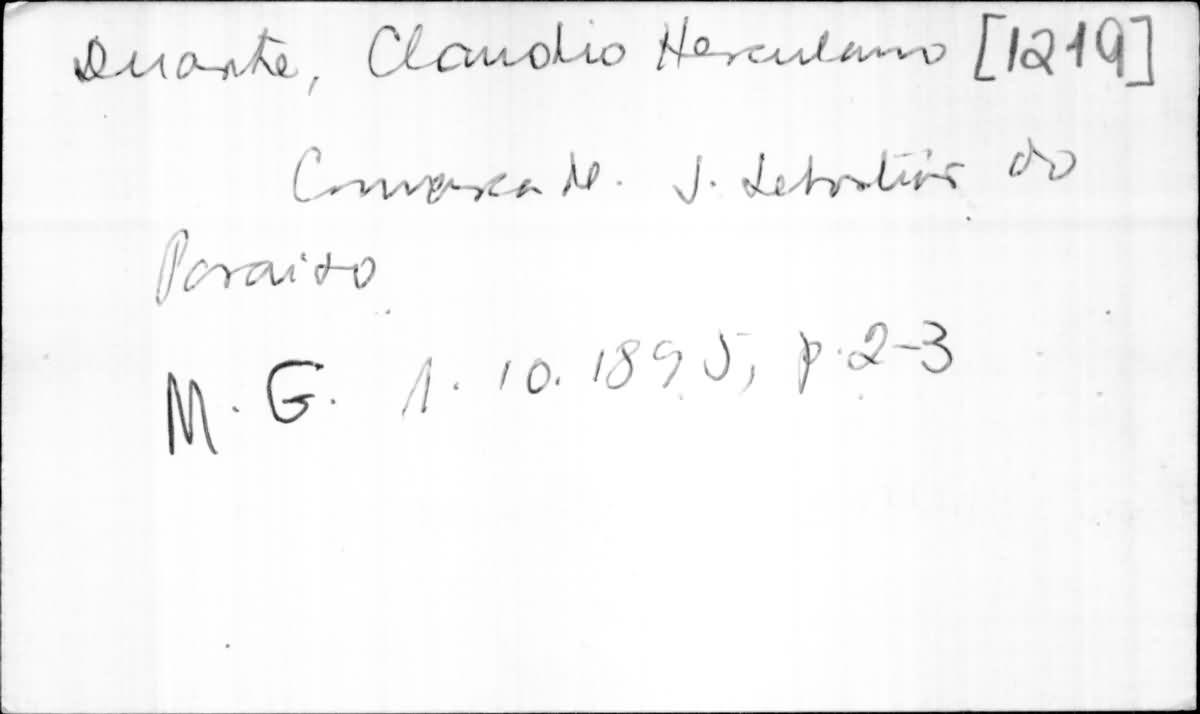 Duarte, Claudio Herculano [1219]
Comarca de. S. Sebastião do
Paraiso
M. G. 1. 10. 1895, p. 2-3